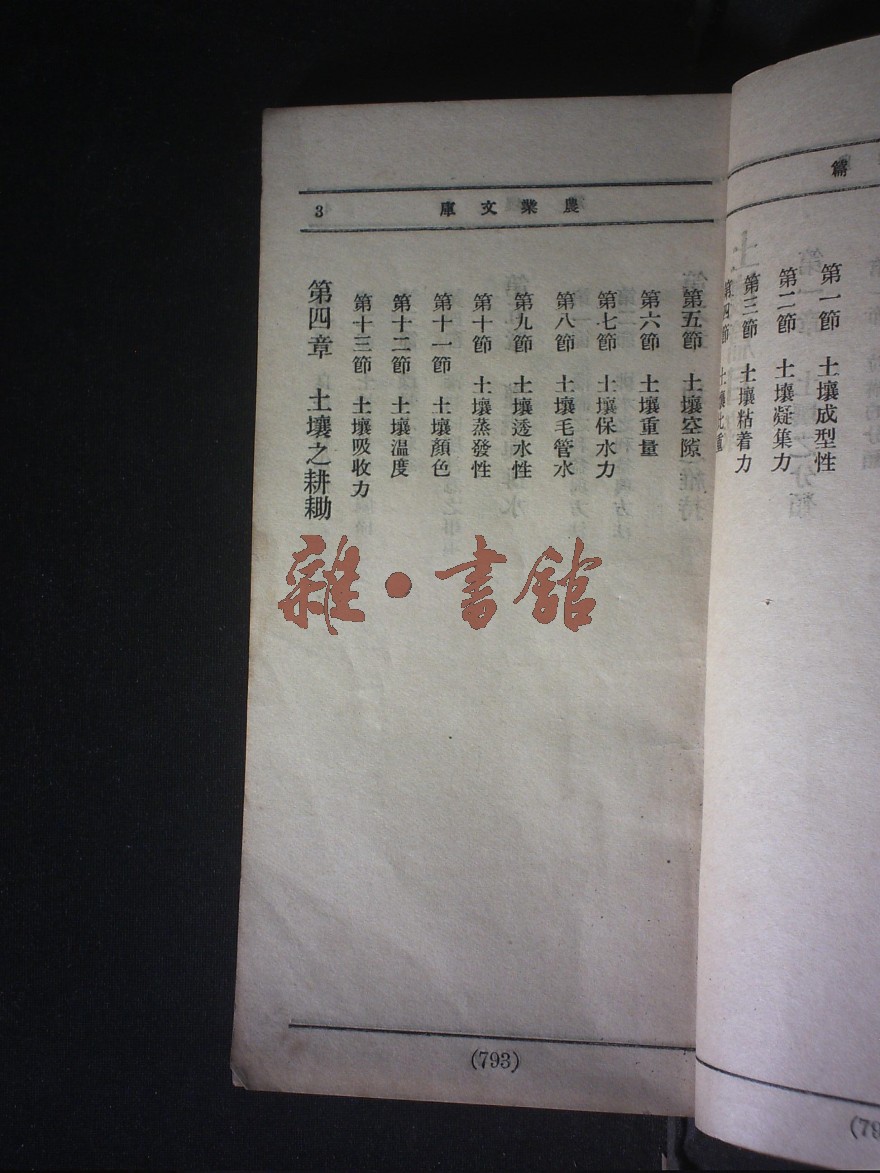 篇
第一節 土壤成型性
第二節 土壤凝集力
第三節 土壤粘着力
第四節 土壤比重
農業文庫
3
第五節 土壤空隙
第六節 土壤重量
第七節 土壤保水力
第八節 土壤毛管水
第九節 土壤透水性
第十節 土壤蒸發性
第十一節 土壤顏色
第十二節 土壤溫度
第十三節 土壤吸收力
第四章 土壤之耕耡
(793)
雜·書館